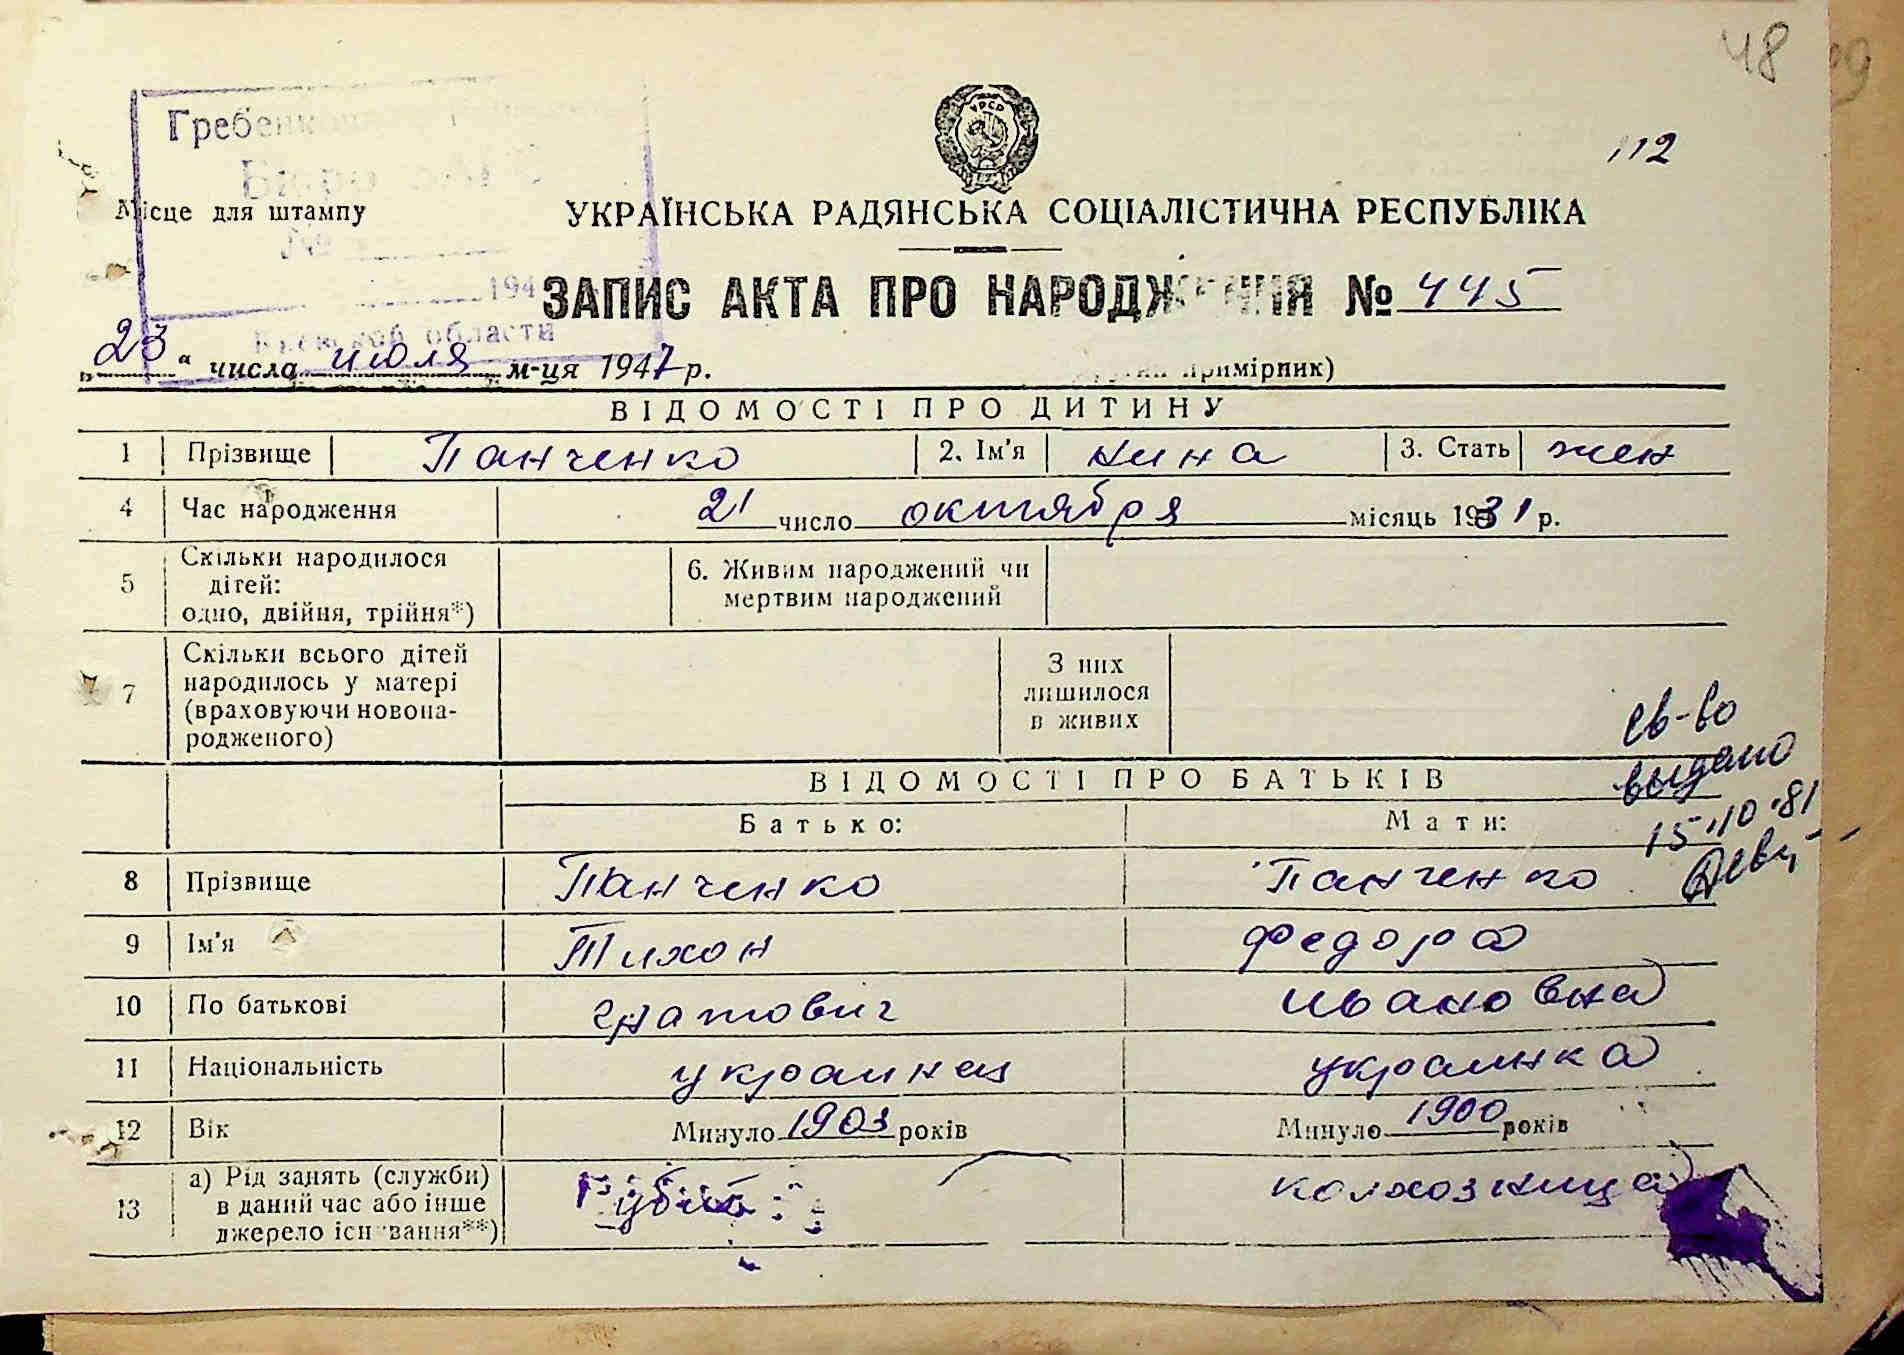 48
112
Гребенков
Бюро
Місце для штампу
№
194
УРСР
УКРАЇНСЬКА РАДЯНСЬКА СОЦІАЛІСТИЧНА РЕСПУБЛІКА
ЗАПИС АКТА ПРО НАРОДЖЕННЯ № 445
Киевской области
„23“ числа июля м-ця 1947 р.
примірник)
ВІДОМОСТІ ПРО ДИТИНУ
1 Прізвище Панченко 2. Ім'я Нина 3. Стать жен
4 Час народження 21 число октября місяць 1931 р.
5 Скільки народилося дітей: одно, двійня, трійня*) 6. Живим народжений чи мертвим народжений
7 Скільки всього дітей народилось у матері (враховуючи новонародженого) З них лишилося в живих
св-во
выдано
15.10.81
ВІДОМОСТІ ПРО БАТЬКІВ
Батько: Мати:
8 Прізвище Панченко Панченко
9 Ім'я Тихон Федора
10 По батькові гнатович ивановна
11 Національність украинец украинка
12 Вік Минуло 1903 років Минуло 1900 років
13 а) Рід занять (служби) в даний час або інше джерело існування**) колхозница